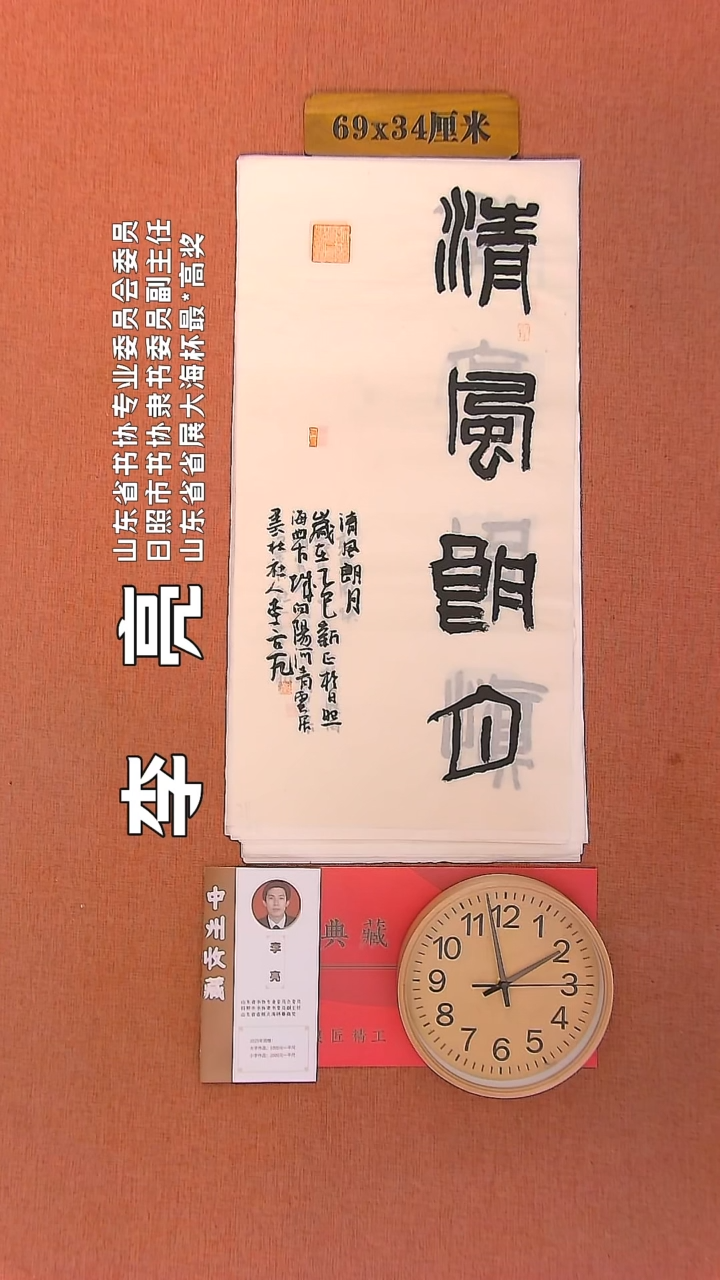 69x34厘米
清風朗月
清风朗月
歲在乙巳新正於日照
海曲古城向陽河青雲居
李亮
山东省书协专业委员会委员
日照市书协隶书委员副主任
山东省省展大海杯最*高奖
李亮
典藏
匠精工
12
1
2
3
4
5
6
7
8
9
10
11